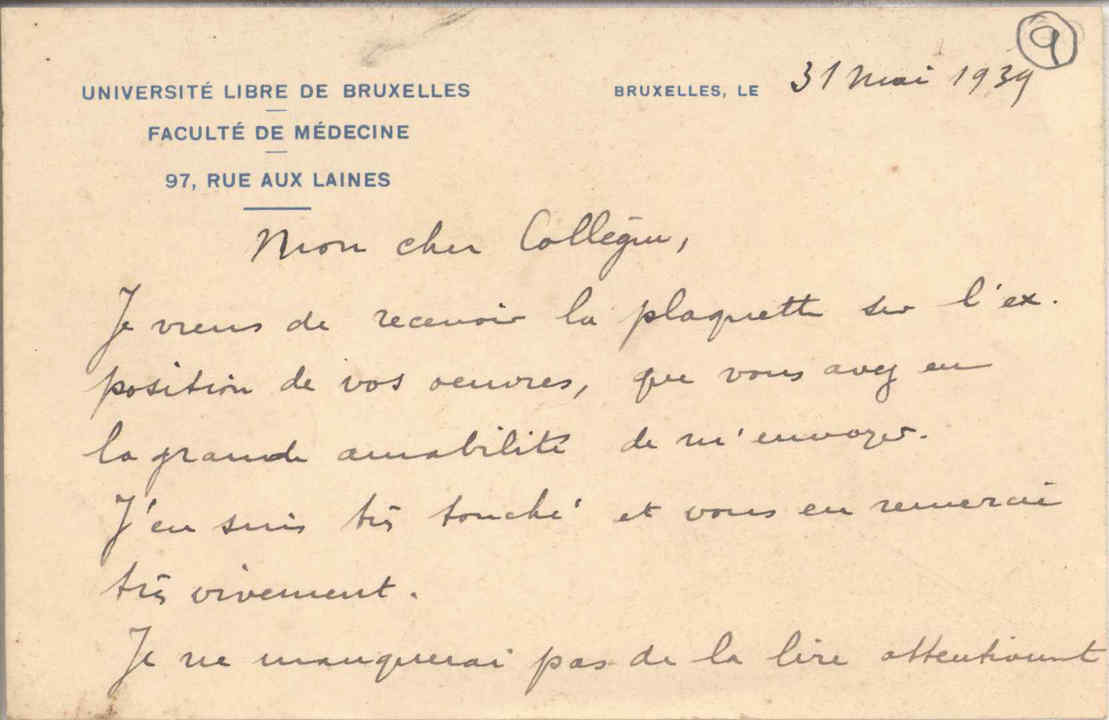 9
UNIVERSITÉ LIBRE DE BRUXELLES
BRUXELLES, LE 31 Mai 1939
FACULTÉ DE MÉDECINE
97, RUE AUX LAINES
Mon cher Collègue,
Je viens de recevoir la plaquette sur l'ex-
position de vos oeuvres, que vous avez eu
la grande amabilité de m'envoyer.
J'en suis très touché et vous en remercie
très vivement.
Je ne manquerai pas de la lire attentivement